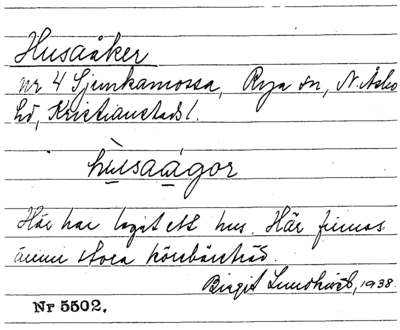 Husaåker
Nr 4 Sjunkamossa, Rya sn, N. Åsbo
hd, Kristianstads l.
husaågor
Här har legat ett hus. Här finnas
ännu stora körsbärsträd.
Birgit Lundkvist, 1938.
Nr 5502.